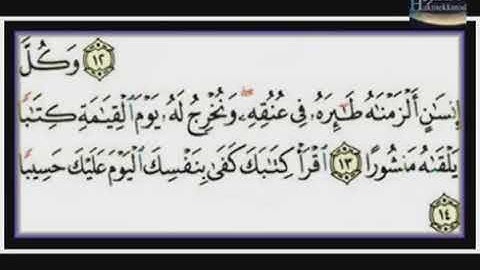 ١٢ وَكُلَّ
إِنسَٰنٍ أَلْزَمْنَٰهُ طَٰٓئِرَهُۥ فِى عُنُقِهِۦ ۖ وَنُخْرِجُ لَهُۥ يَوْمَ ٱلْقِيَٰمَةِ كِتَٰبًا
يَلْقَىٰهُ مَنشُورًا ١٣ ٱقْرَأْ كِتَٰبَكَ كَفَىٰ بِنَفْسِكَ ٱلْيَوْمَ عَلَيْكَ حَسِيبًا
١٤